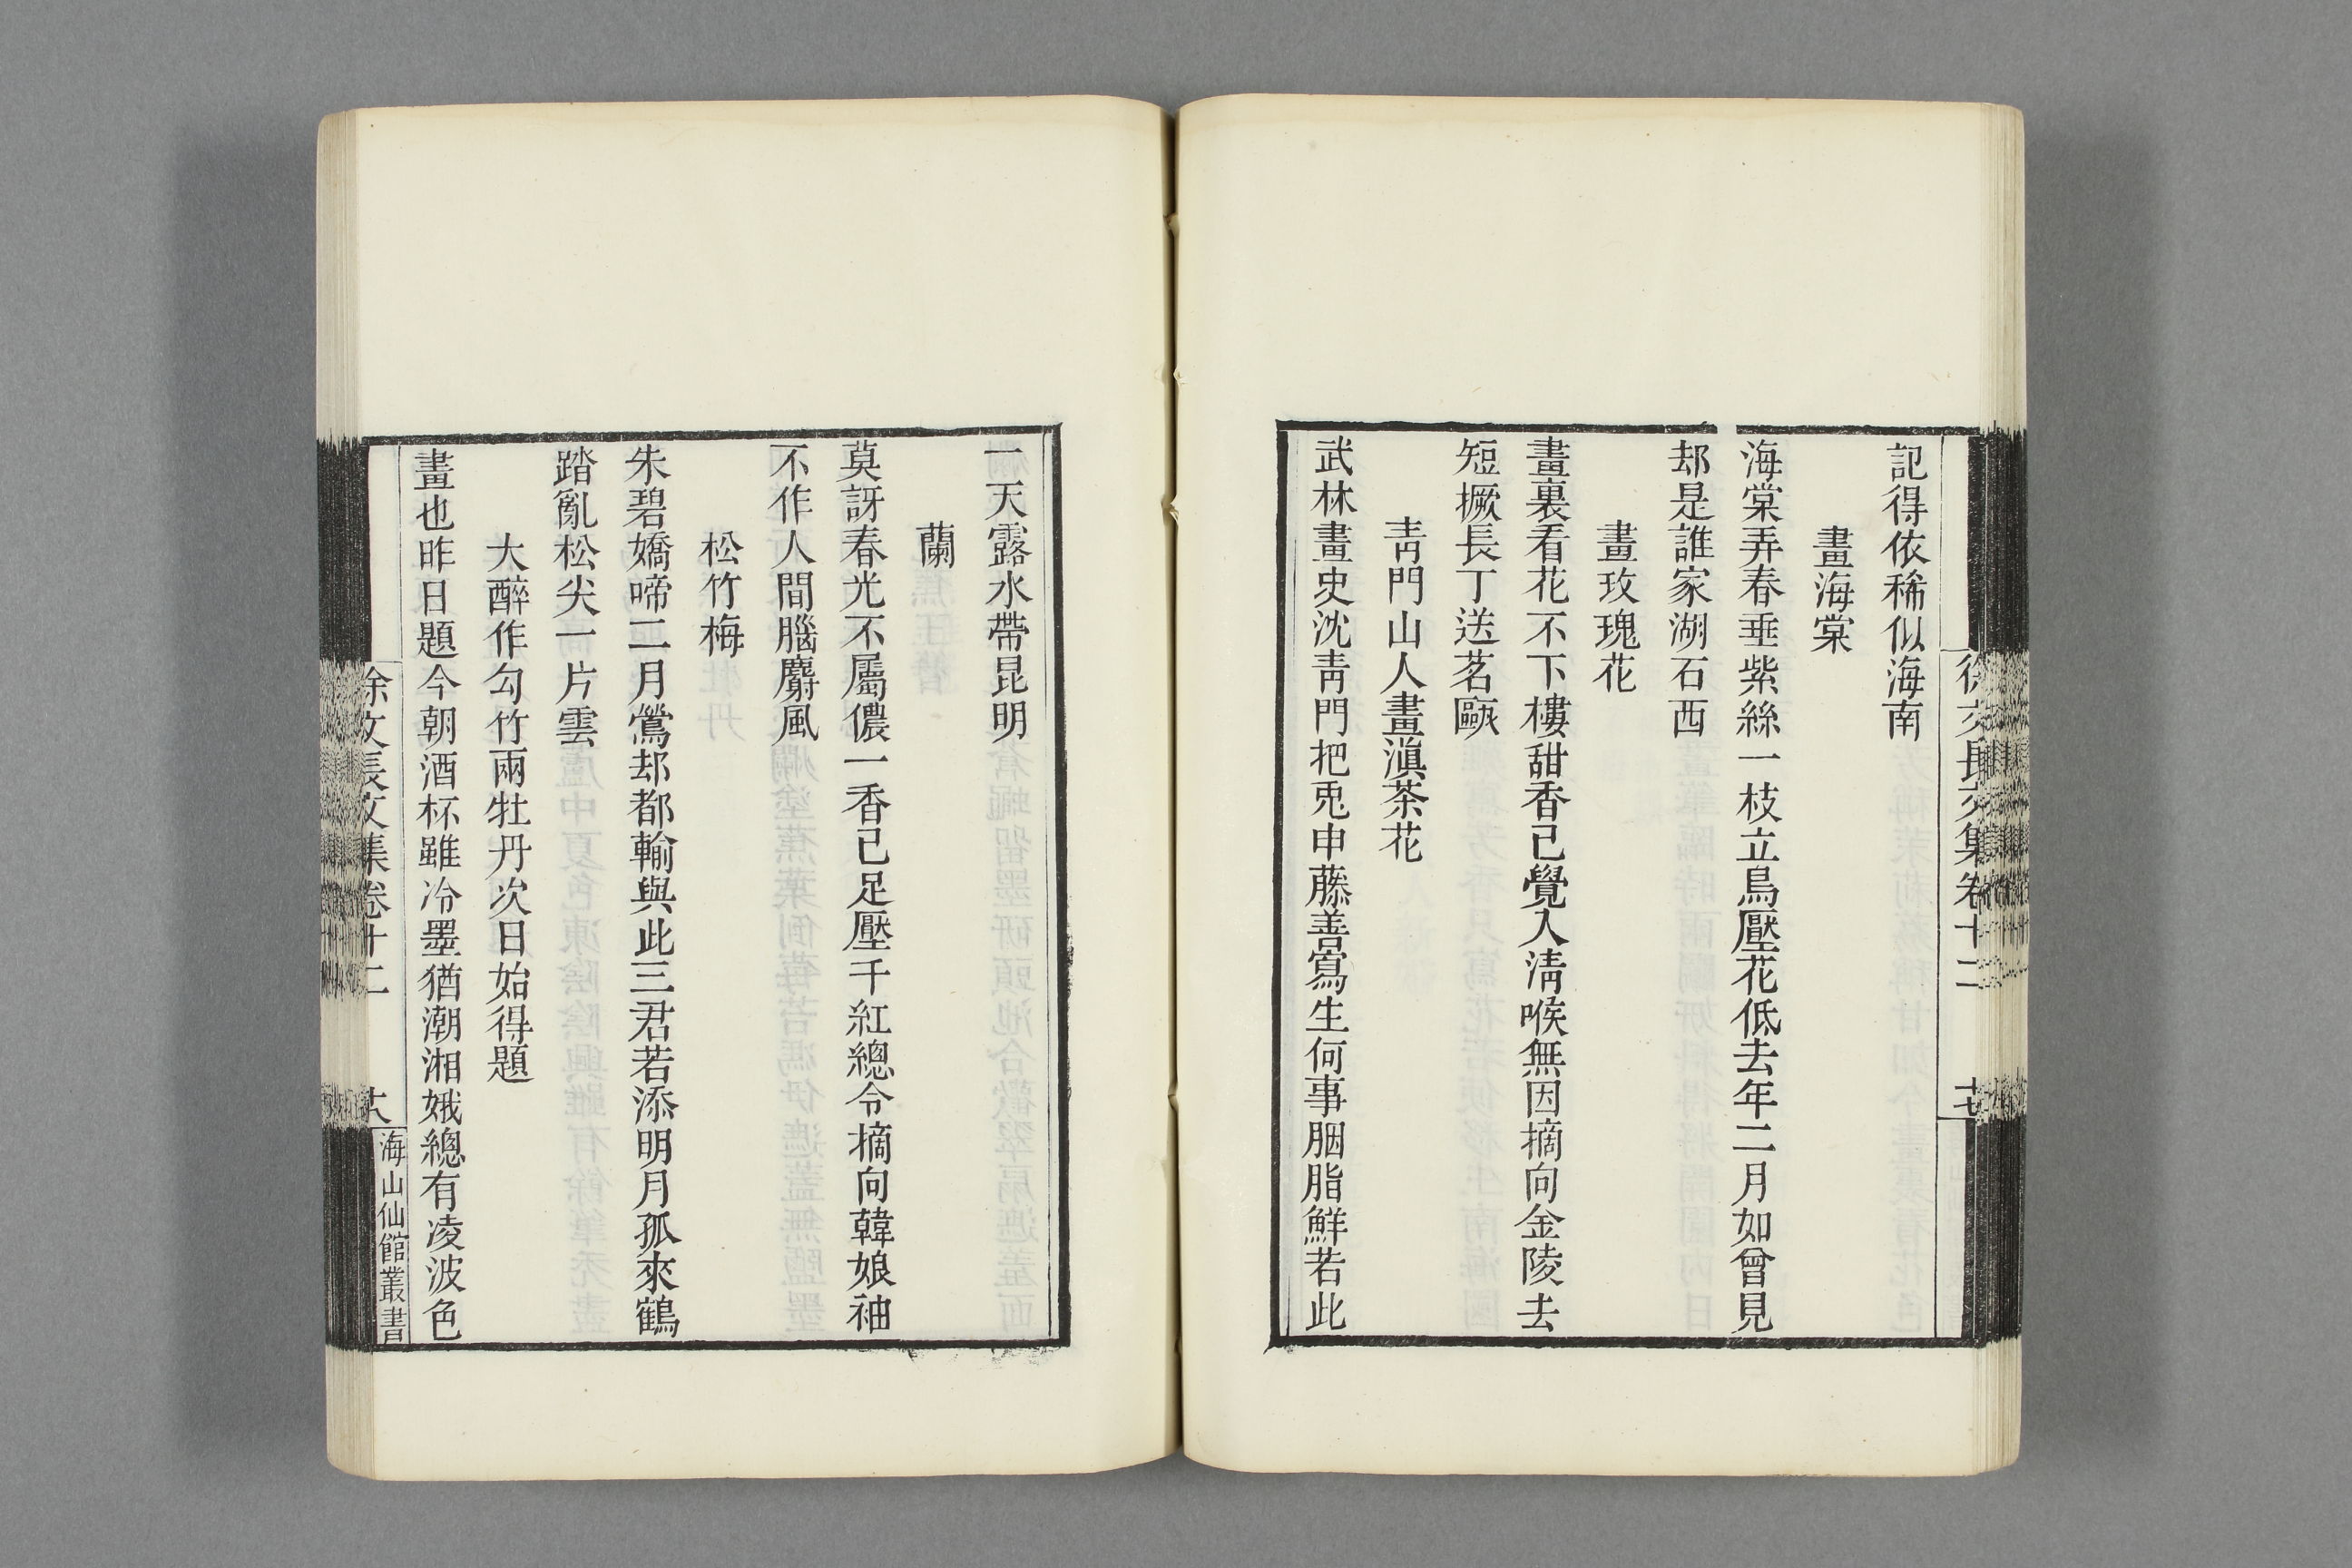 記得依稀似海南
畫海棠
海棠弄春垂紫絲一枝立鳥壓花低去年二月如曾見
却是誰家湖石西
畫玫瑰花
畫裏看花不下樓甜香已覺入淸喉無因摘向金陵去
短撅長丁送茗甌
靑門山人畫滇茶花
武林畫史沈靑門把兎申藤善寫生何事胭脂鮮若此
一天露水帶昆明
蘭
莫訝春光不屬儂一香已足壓千紅總令摘向韓娘袖
不作人間腦麝風
松竹梅
朱碧嬌啼二月鶯却都輸與此三君若添明月孤來鶴
踏亂松尖一片雲
大醉作勾竹兩牡丹次日始得題
畫也昨日題今朝酒杯雖冷墨猶潮湘娥總有凌波色
徐文長文集卷十二
十七
徐文長文集卷十二
十八
海山仙館叢書